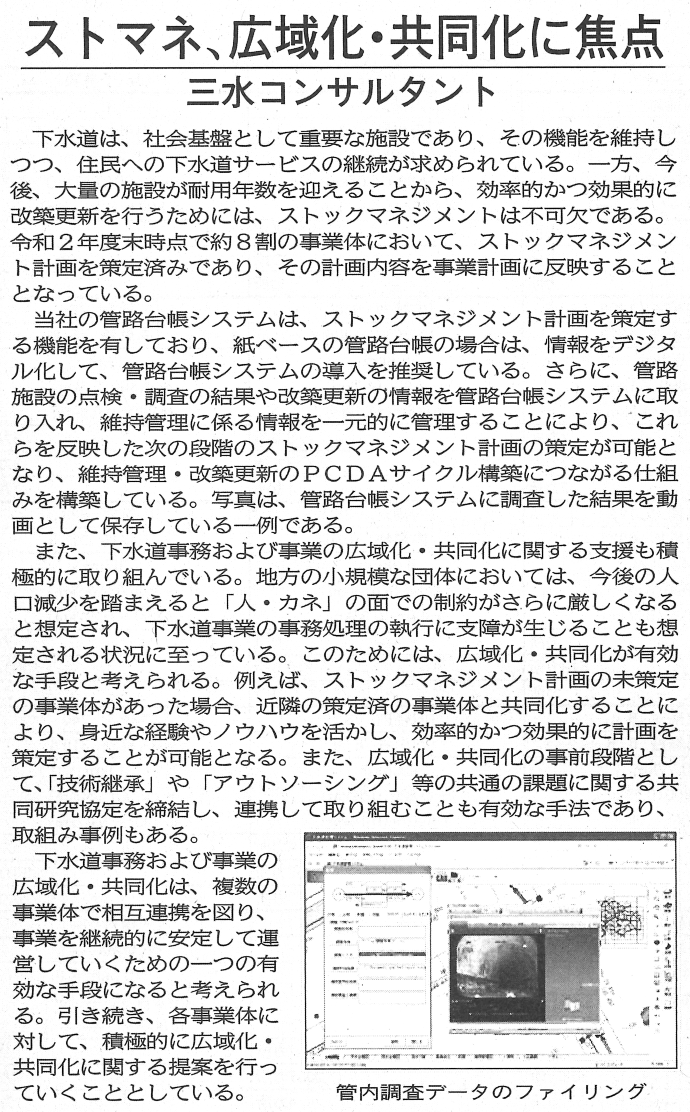 ストマネ、広域化・共同化に焦点
三水コンサルタント
下水道は、社会基盤として重要な施設であり、その機能を維持し
つつ、住民への下水道サービスの継続が求められている。一方、今
後、大量の施設が耐用年数を迎えることから、効率的かつ効果的に
改築更新を行うためには、ストックマネジメントは不可欠である。
令和２年度末時点で約８割の事業体において、ストックマネジメン
ト計画を策定済みであり、その計画内容を事業計画に反映すること
となっている。
当社の管路台帳システムは、ストックマネジメント計画を策定す
る機能を有しており、紙ベースの管路台帳の場合は、情報をデジタ
ル化して、管路台帳システムの導入を推奨している。さらに、管路
施設の点検・調査の結果や改築更新の情報を管路台帳システムに取
り入れ、維持管理に係る情報を一元的に管理することにより、これ
らを反映した次の段階のストックマネジメント計画の策定が可能と
なり、維持管理・改築更新のＰＣＤＡサイクル構築につながる仕組
みを構築している。写真は、管路台帳システムに調査した結果を動
画として保存している一例である。
また、下水道事務および事業の広域化・共同化に関する支援も積
極的に取り組んでいる。地方の小規模な団体においては、今後の人
口減少を踏まえると「人・カネ」の面での制約がさらに厳しくなる
と想定され、下水道事業の事務処理の執行に支障が生じることも想
定される状況に至っている。このためには、広域化・共同化が有効
な手段と考えられる。例えば、ストックマネジメント計画の未策定
の事業体があった場合、近隣の策定済の事業体と共同化することに
より、身近な経験やノウハウを活かし、効率的かつ効果的に計画を
策定することが可能となる。また、広域化・共同化の事前段階とし
て、「技術継承」や「アウトソーシング」等の共通の課題に関する共
同研究協定を締結し、連携して取り組むことも有効な手法であり、
取組み事例もある。
下水道事務および事業の
広域化・共同化は、複数の
事業体で相互連携を図り、
事業を継続的に安定して運
営していくための一つの有
効な手段になると考えられ
る。引き続き、各事業体に
対して、積極的に広域化・
共同化に関する提案を行っ
ていくこととしている。
管内調査データのファイリング